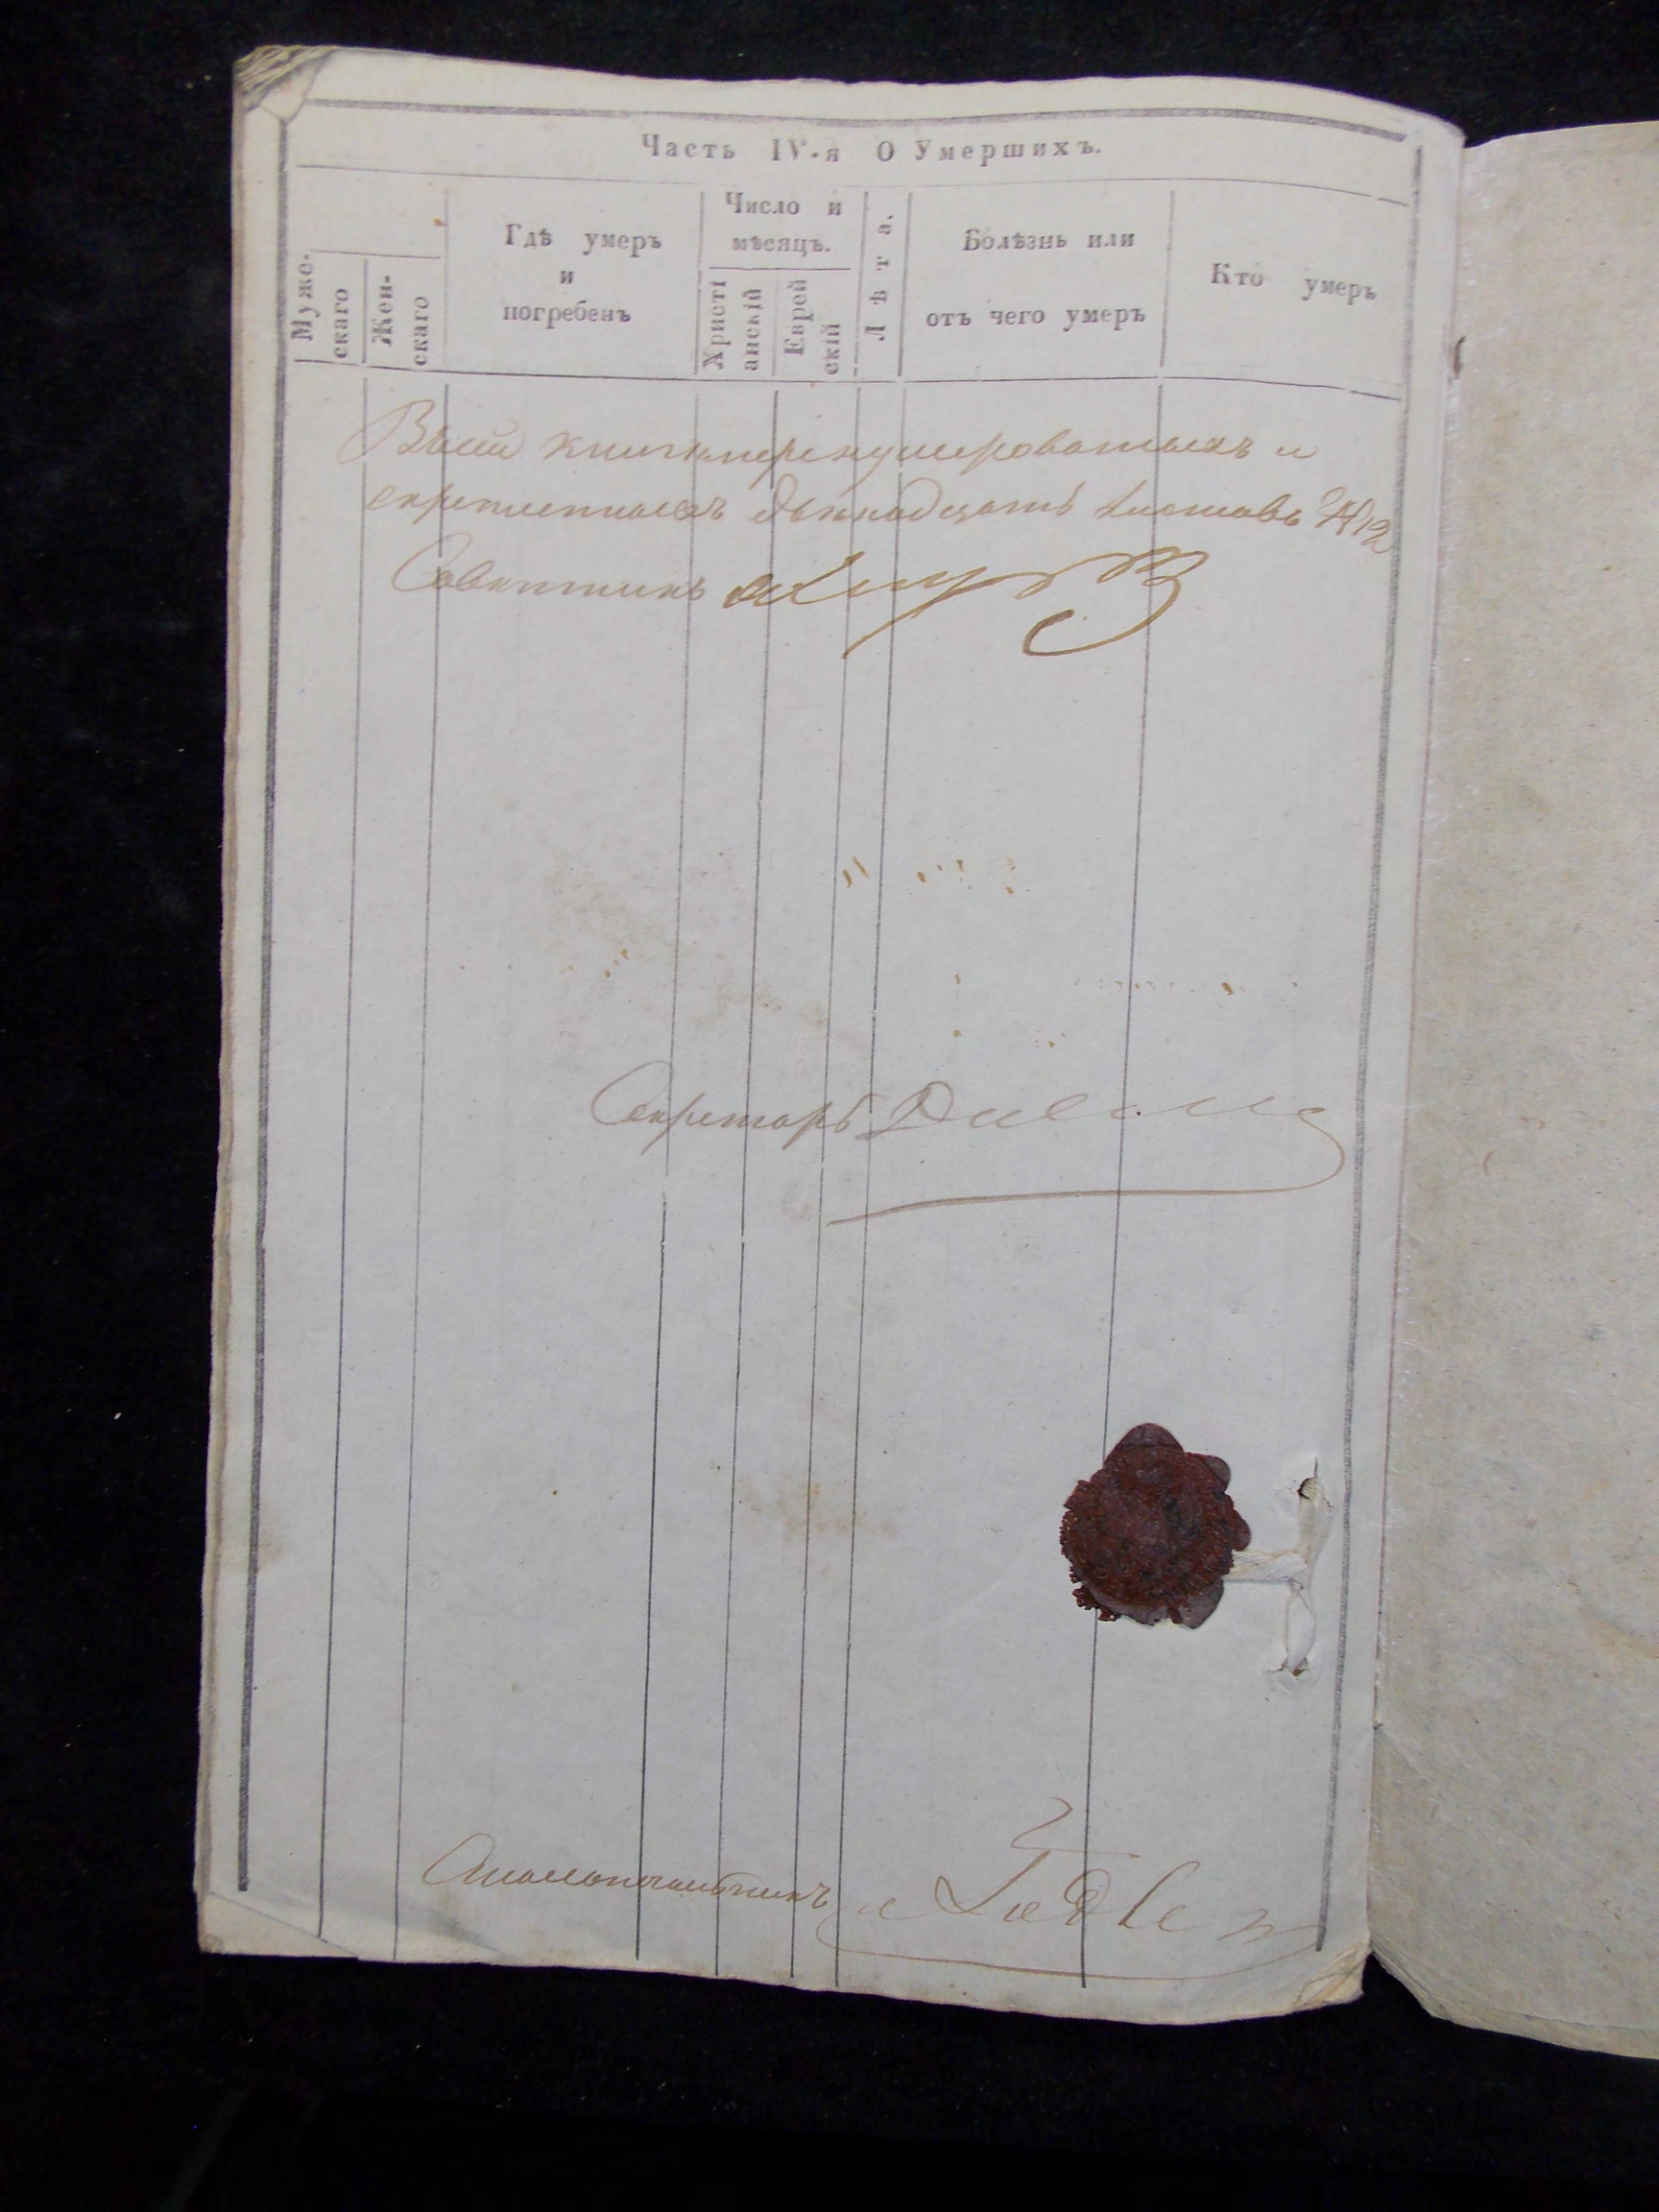 Часть IV-я О Умершихъ.
Муже-
скаго
Жен-
скаго
Гдѣ умеръ
и
погребенъ
Число и
мѣсяцъ.
Христі
анскій
Еврей
скій
Лѣта.
Болѣзнь или
отъ чего умеръ
Кто умеръ
Въ сей книгѣ перенумерованныхъ и
скрепленныхъ двѣнадцать листовъ
Совѣтникъ
Секретарь
Столоначальникъ